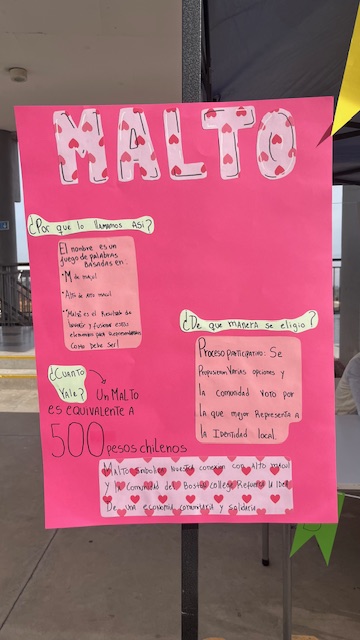 MALTO
¿Por que lo llamamos ASí?
El nombre es un
juego de palabras
BASADAS en.
• M de maul
• Alto de Alto maul
• "Malto" es el Resultado de
y fusionar estos
elementos para Representarlos
como Debe ser!
¿De que manera se eligio?
Proceso participativo: Se
Propusieron Varias opciones y
la comunidad voto por
la que mejor Representa a
la Identidad local.
¿CUANTO
Vale?
Un MALTO
es equivalente a
500 pesos chilenos
Malto simboliza Nuestra conexion con Alto maul
y la Comunidad del Boston College. Refuerza la Idea
De una economia comunitaria y solidaria.